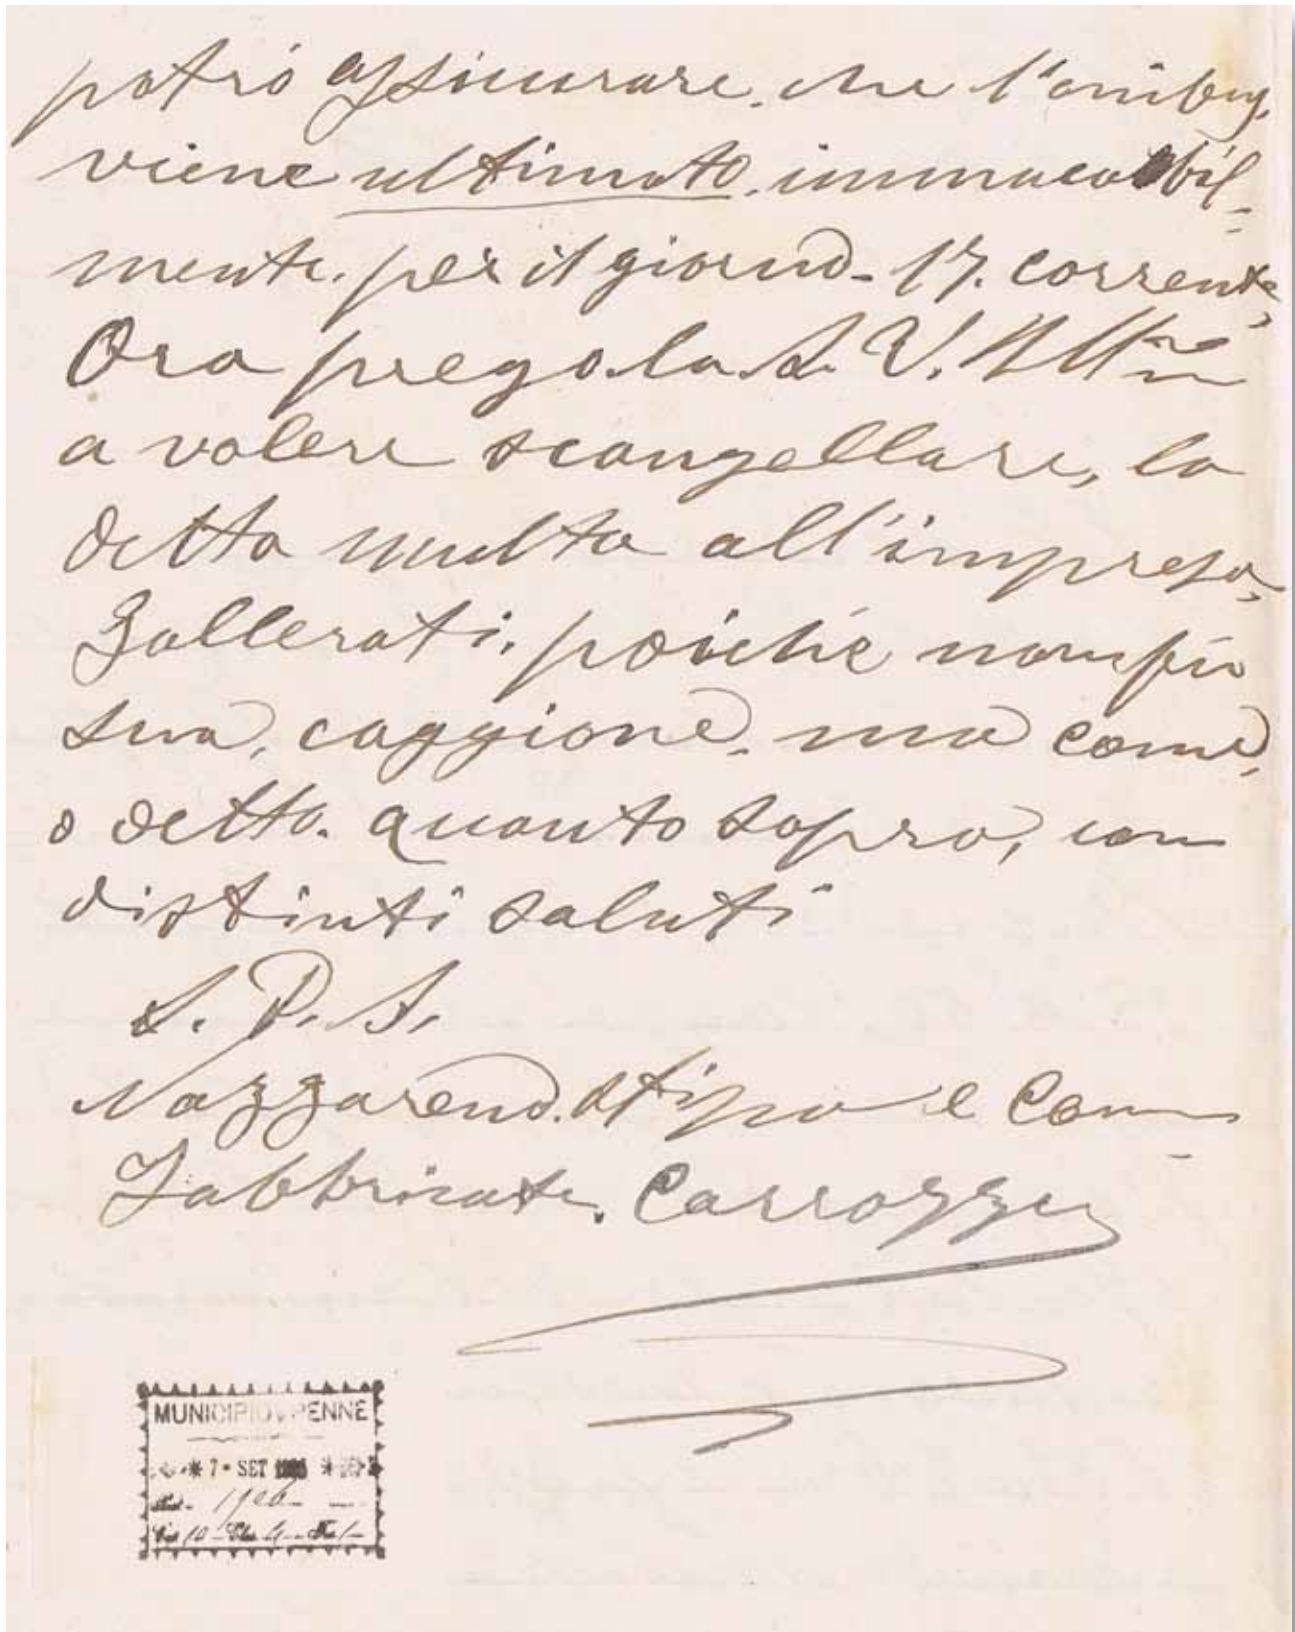 potrò assicurare. che l'onibus,
viene ultimato. immancabil-
mente. per il giorno - 17. corrente,
Ora prego. la S. V. Ill.ma
a volere scangellare, la
detta multa all'impresa,
Gallerati. poichè non fù
sua, caggione. ma come,
o detto. quanto sopra, con
distinti saluti
S. P. A.
Nazzareno. Stipa e Com-
Fabbricate. Carrozze
MUNICIPIO PENNE
* 7 * SET *